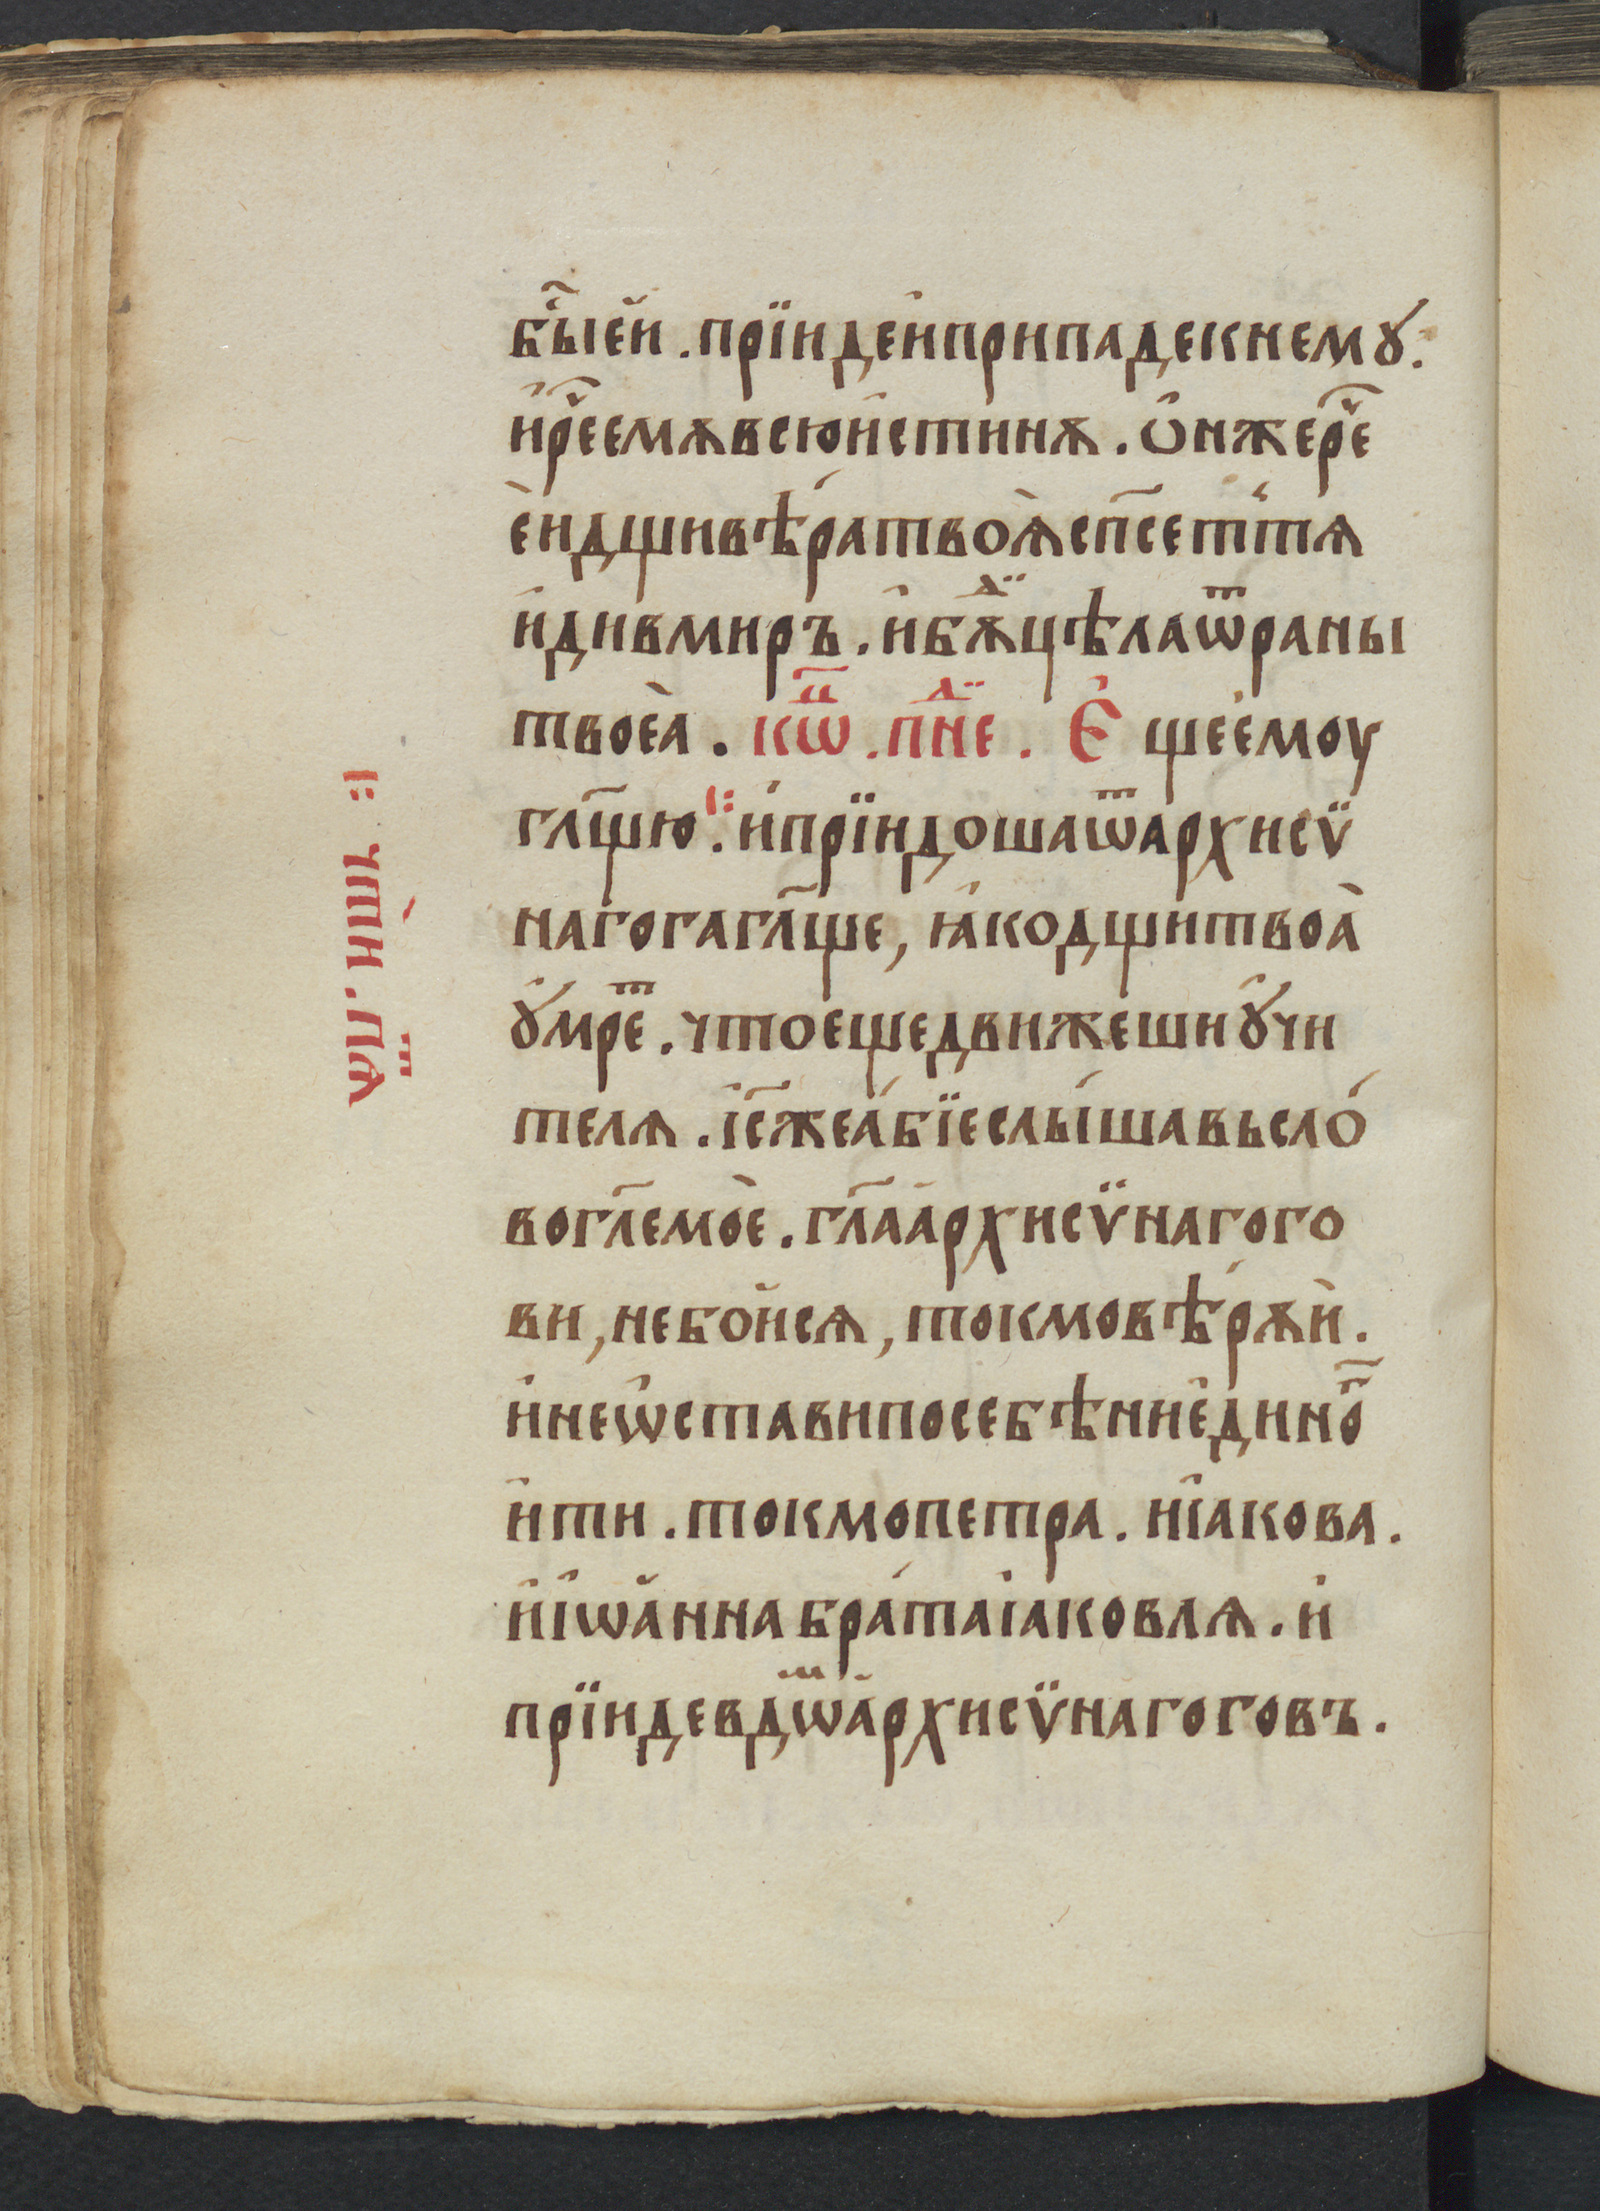 бы́їей . прїиде́ипрıпадекнемꙋ .
и҆рⷱ҇еемѫвсюи҆стинѫ . ѻ҆нжерⷱ҇е
ѐидщивѣ́ратвоѧ̀сп҃сеттѧ
и҆дивмиръ . и҆бѫⷣцѣлаѿраны
твоеа̀ . кѡⷰ҇ . пнⷣе . Є҆щеемоу
гл҃щю . и҆прїидо́шаѿархисѵ̈
наго́гагл҃ще , ꙗ҆кодщитвоа̀
ꙋ҆́мреⷮ . чтоещедвижешиꙋ҆чи
телѧ . і҆с҃жеа҆бїеслы́шавьсло́
вогл҃емо̀е . гл҃аархисѵ̈нагого
ви , небо́йсѧ , токмовѣ́рѫѝ .
и҆неѡ҆ставипосебѣниедино҃
и҆ти . токмопетра . иїакова .
и҆і҆ѡа́ннабра́таіаковлѧ . и҆
прїидевдѡⷨа҆рхисѵ̈нагоговъ .